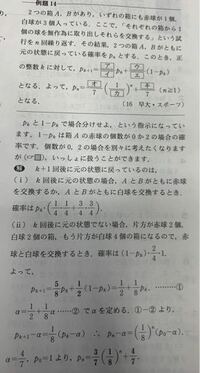 例題 14
2つの箱 A, B があり、いずれの箱にも赤球が1個,
白球が3個入っている. ここで,「それぞれの箱から1
個の球を無作為に取り出しそれらを交換する」という試
行を n 回繰り返す. その結果, 2つの箱 A, B がともに
元の状態に戻っている確率を pₙ とする. このとき, 正
の整数 k に対して, pₖ₊₁= ア/イ pₖ+ ウ/エ (1-pₖ)
となる. よって, pₙ= オ/7 (1/カ)ⁿ+ キ/7 (n≧1)
となる. (16 早大・スポーツ)
pₖ と 1-pₖ で場合分けせよ、という指示になってい
ます. 1-pₖ は箱 A の赤球の個数が 0か2の場合の確
率です. 個数が 0, 2 の場合を別々に考えたくなります
が , いっしょに扱うことができます.
解 k+1 回後に元の状態になっているのは,
(i) k 回後に元の状態の場合, A と B がともに赤球
を交換するか, A と B がともに白球を交換するとき,
確率は pₖ・(1/4・1/4+3/4・3/4).
(ii) k 回後に元の状態でない場合, 片方が赤球2個,
白球2個の箱, もう片方が白球4個の箱になるので, 赤
球と白球を交換するとき, 確率は (1-pₖ)・2/4・1.
よって,
pₖ₊₁=5/8 pₖ+1/2 (1-pₖ)=1/2+1/8 pₖ. ……①
α=1/2+1/8 α ……② で α を定める. ①-② より,
pₖ₊₁-α=1/8 (pₖ-α) ∴ pₙ-α=(1/8)ⁿ(p₀-α).
α=4/7, p₀=1 より, pₙ=3/7 (1/8)ⁿ+4/7.